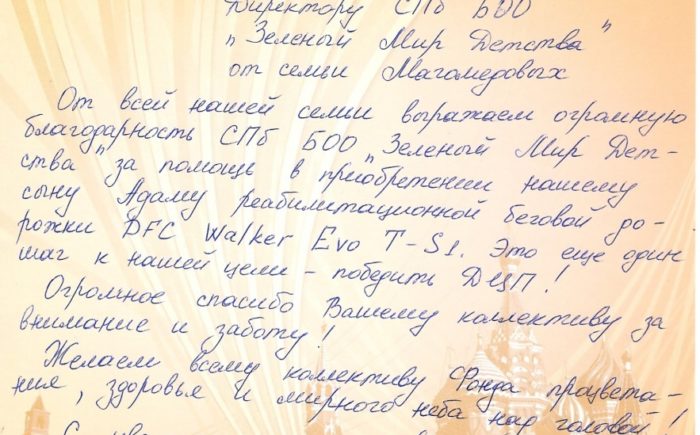 Директору СПб БОО
„Зеленый Мир Детства"
от семьи Магомедовых
От всей нашей семьи выражаем огромную
благодарность СПб БОО „Зеленый Мир Дет-
ства" за помощь в приобретении нашему
сыну Адаму реабилитационной беговой до-
рожки DFC Walker Evo T-S1. Это еще один
шаг к нашей цели - победить ДЦП!
Огромное спасибо Вашему коллективу за
внимание и заботу!
Желаем всему коллективу Фонда процвета-
ния, здоровья и мирного неба над головой!